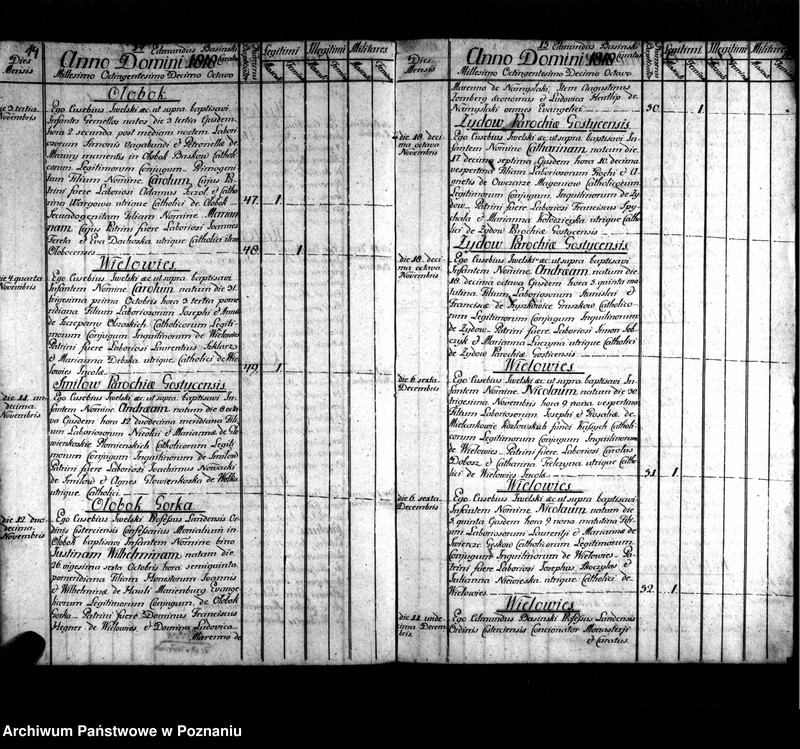 44
14 Edmundus Basinski Curatus
Dies Mensis
Anno Domini 1818
Millesimo Octingentesimo Decimo Octavo
Legitimi
Illegitimi
Militares
Olobok
die 3. tertia Novembris
Ego Eusebius Iwelski ac ut supra baptisavi
Infantes Gemellos natos die 3. tertia Ejusdem
hora 2 secunda post mediam noctem Labori
osorum Simonis Vagabundi et Petronellæ de
Mazury manentis in Olobok Baskow Catholi
corum Legitimorum Conjugum. Primogeni
tum Filium Nomine Carolum, Cujus Pa
trini fuere Laboriosi Adamus et Catha
rina Wargowa utrique Catholici de Olobok
47. 1.
Secundogenitam Filiam Nomine Marian
nam Cujus Patrini fuere Laboriosi Joannes
Terela et Eva Dachoska utrique Catholici item
Olobocenses
48. 1
Wielowies
die 4. quarta Novembris
Ego Eusebius Iwelski ac ut supra baptisavi
Infantem Nomine Carolum natum die 31.
trigesima prima Octobris hora 3 tertia pome
ridiana Filium Laboriosorum Josephi et Annæ
de Szczepany Oloroskich Catholicorum Legiti
morum Conjugum Inquilinorum de Wielowies
Patrini fuere Laboriosi Laurentius Szklarz
et Marianna Debska utrique Catholici de Wie
lowies Incolæ
49. 1.
Smilow Parochiæ Gostycensis
die 11. un decima Novembris
Ego Eusebius Iwelski ac ut supra baptisavi In
fantem Nomine Andræam natum die 8 octa
va Ejusdem hora 12 duodecima meridiana Fili
um Laboriosorum Nicolai et Mariannæ de Glo
wienkoskie Plomienskich Catholicorum Legiti
morum Conjugum Inquilinorum de Smilow
Patrini fuere Laboriosi Joachimus Nowacki
de Smilow et Agnes Glowienkoska de Wolka
utrique Catholici
Olobok Gorka
die 12. duo decima Novembris
Ego Eusebius Iwelski Professus Landensis Or
dinis Cisterciensis Confessarius Monialium in
Olobok baptisavi Infantem Nomine bino
Justinam Wilhelminam natam die
26 vigesima sexta Octobris hora semiquinta
pomeridiana Filiam Honestorum Joannis
et Wilhelminæ de Hauli Marienburg Evange
licorum Legitimorum Conjugum de Olobok
Gorka. Patrini fuere Dominus Franciscus
Hegner de Wielowies et Domina Ludovica
Maremno de
15 Edmundus Basinski Curatus
Dies Mensis
Anno Domini 1818
Millesimo Octingentesimo Decimo Octavo
Legitimi
Illegitimi
Militares
Maremno de Namyslaki, Item Augustinus
Lomberg œconomus et Ludovica Hentlip de
Namyslaki omnes Evangelici
50. 1.
Zydow Parochiæ Gostycensis
die 18. deci ma octava Novembris
Ego Eusebius Iwelski ac ut supra baptisavi In
fantem Nomine Catharinam natam die
17 decima septima Ejusdem hora 10. decima
vespertina Filiam Laboriosorum Rochi et A
gnetis de Owczarze Mayoniow Catholicorum
Legitimorum Conjugum Inquilinorum de Zy
dow. Patrini fuere Laboriosi Franciscus Spy
chala et Marianna Kolodzieyka utrique Catho
lici de Zydow Parochiæ Gostycensis
Zydow Parochiæ Gostycensis
die 18. deci ma octava Novembris
Ego Eusebius Iwelski ac ut supra baptisavi
Infantem Nomine Andræam natum die
18. decima octava Ejusdem hora 5 quinta ma
tutina Filium Laboriosorum Stanislai et
Franciscæ de Gruszkow Catholico
rum Legitimorum Conjugum Inquilinorum
de Zydow. Patrini fuere Laboriosi Simon Sob
czyk et Marianna Luczyna utrique Catholici
de Zydow Parochiæ Gosticensis
Wielowies
die 6. sexta Decembris
Ego Eusebius Iwelski ac ut supra baptisavi In
fantem Nomine Nicolaum natum die 30
trigesima Novembris hora 9 nona vespertina
Filium Laboriosorum Josephi et Rosaliæ de
Miekankowie Kozlowskich Catholi
corum Legitimorum Conjugum Inquilinorum
de Wielowies. Patrini fuere Laboriosi Carolus
Dobosz et Catharina Trelezyna utrique Catho
lici de Wielowies Incolæ
51. 1.
Wielowies
die 6. sexta Decembris
Ego Eusebius Iwelski ac ut supra baptisavi
Infantem Nomine Nicolaum natum die
5 quinta Ejusdem hora 9 nona matutina Fili
um Laboriosorum Laurentii et Mariannæ de
Swierze Geskow Catholicorum Legitimorum
Conjugum Inquilinorum de Wielowies. Pa
trini fuere Laboriosi Josephus Skoczylas et
Julianna Niewieska utrique Catholici de
Wielowies
52. 1.
Wielowies
die 11. unde cima Decem bris.
Ego Edmundus Basinski Professus Landensis
Ordinis Cisterciensis Concionator Monasterji
et Curatus.
Archiwum Państwowe w Poznaniu